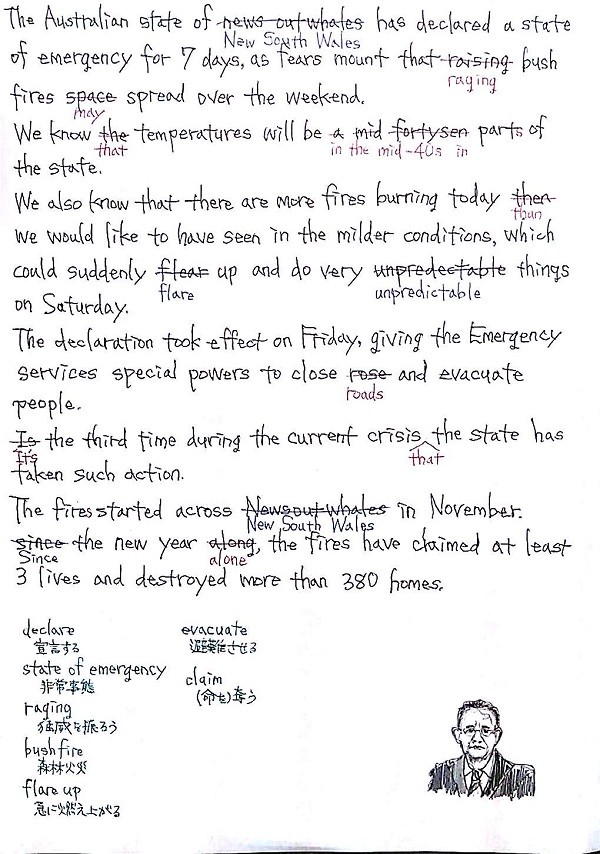 The Australian state of news outwhales has declared a state
New South Wales
of emergency for 7 days, as fears mount that raising bush
raging
fires space spread over the weekend.
may
We know the temperatures will be a mid fortysen parts of
that in the mid-40s in
the state.
We also know that there are more fires burning today then
than
we would like to have seen in the milder conditions, which
could suddenly flear up and do very unpredectable things
flare unpredictable
on Saturday.
The declaration took effect on Friday, giving the Emergency
services special powers to close rose and evacuate
roads
people.
Is the third time during the current crisis the state has
It's that
taken such action.
The fires started across Newsout whales in November.
New South Wales
since the new year along, the fires have claimed at least
Since alone
3 lives and destroyed more than 380 homes.
declare
宣言する
state of emergency
非常事態
raging
猛威を振るう
bushfire
森林火災
flare up
急に燃え上がる
evacuate
避難させる
claim
(命を)奪う